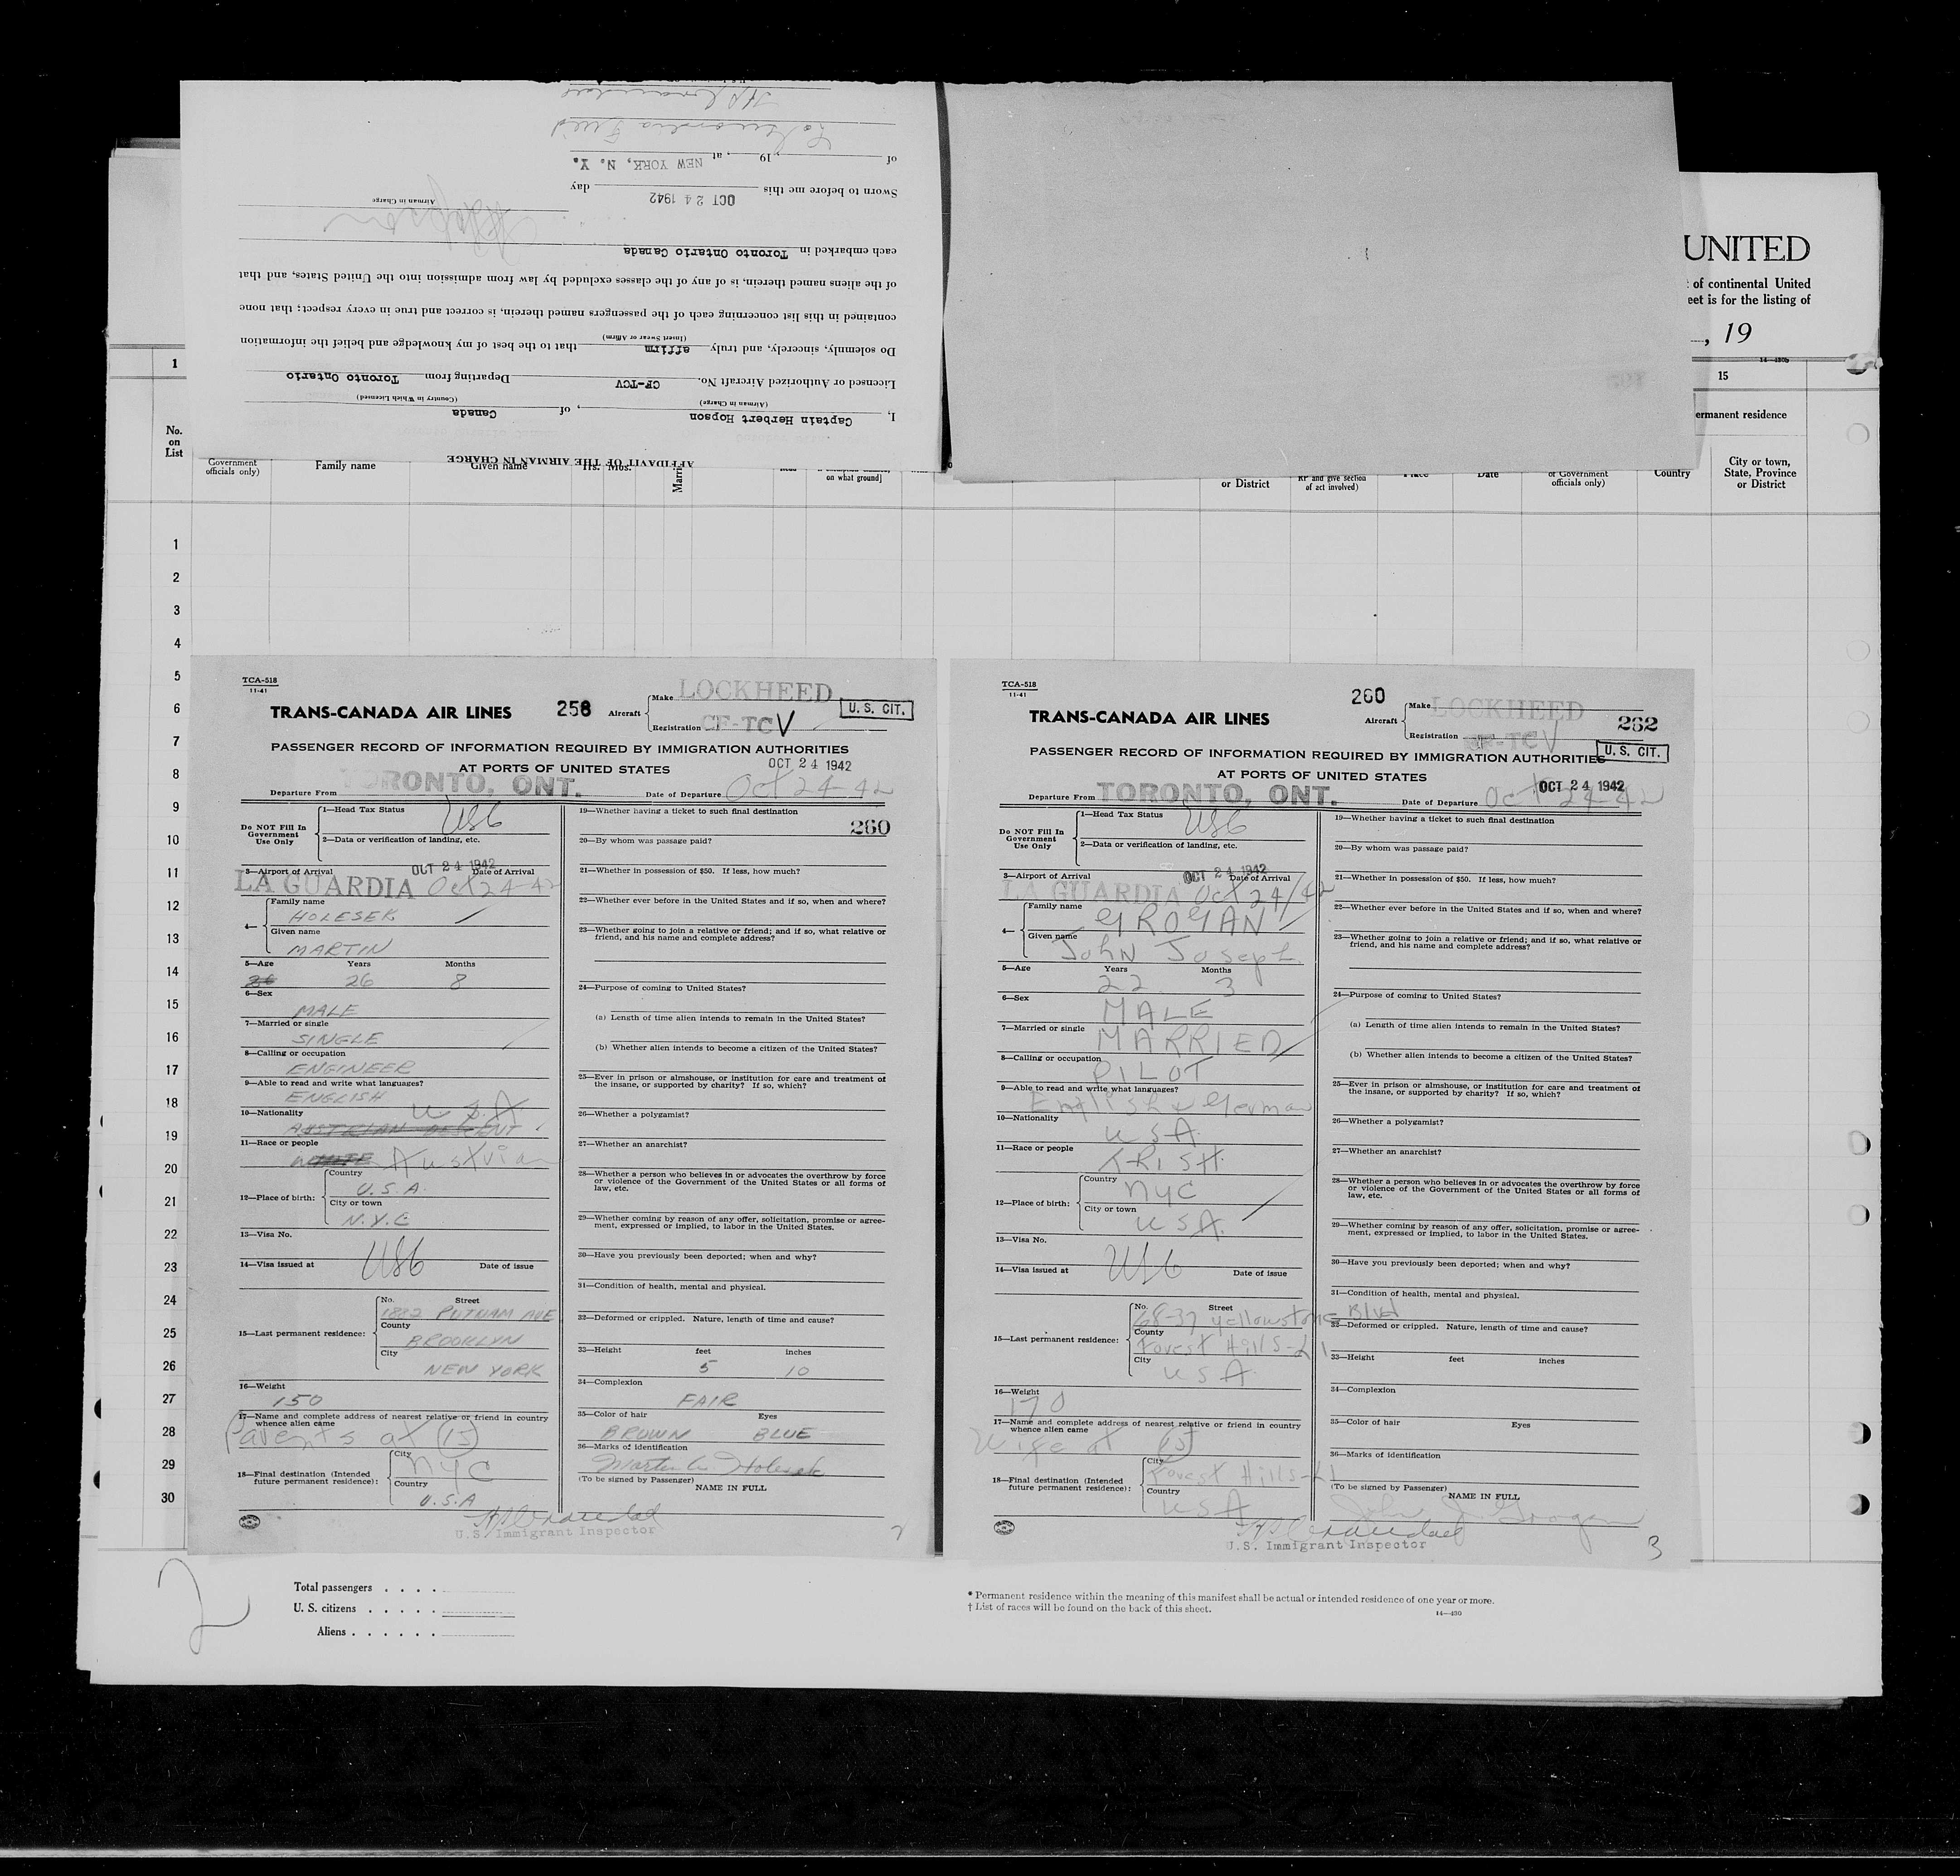 H R Crandall
La Guardia Field
of , 19 , at NEW YORK, N. Y.
Sworn to before me this OCT 24 1942 day
Airman in Charge
each embarked in Toronto Ontario Canada
of the aliens named therein, is of any of the classes excluded by law from admission into the United States, and that
contained in this list concerning each of the passengers named therein, is correct and true in every respect; that none
(Insert Swear or Affirm)
Do solemnly, sincerely, and truly affirm that to the best of my knowledge and belief the information
Licensed or Authorized Aircraft No. CF-TCV Departing from Toronto Ontario
(Airman in Charge) (Country in Which Licensed)
I, Captain Herbert Hopson , of Canada
AFFIDAVIT OF THE AIRMAN IN CHARGE
UNITED
of continental United
eet is for the listing of
, 19
14—430b
1
15
ermanent residence
No.
on
List
Government
officials only)
Family name
Given name
Yrs. Mos.
on what ground]
or District
RP and give section
of act involved)
Place
Date
of Government
officials only)
Country
City or town,
State, Province
or District
1
2
3
4
5
6
7
8
9
10
11
12
13
14
15
16
17
18
19
20
21
22
23
24
25
26
27
28
29
30
TCA-518
11-41
TRANS-CANADA AIR LINES
258
Aircraft
Make LOCKHEED
Registration CF-TCV
U. S. CIT.
PASSENGER RECORD OF INFORMATION REQUIRED BY IMMIGRATION AUTHORITIES
AT PORTS OF UNITED STATES
OCT 24 1942
Departure From TORONTO, ONT. Date of Departure Oct 24-42
Do NOT Fill In
Government
Use Only
1—Head Tax Status
USC
2—Data or verification of landing, etc.
OCT 24 1942
3—Airport of Arrival Date of Arrival
LA GUARDIA Oct 24-42
4—
Family name
HOLESEK
Given name
MARTIN
5—Age Years Months
26 26 8
6—Sex
MALE
7—Married or single
SINGLE
8—Calling or occupation
ENGINEER
9—Able to read and write what languages?
ENGLISH
10—Nationality U.S.A.
AUSTRIAN DESCENT
11—Race or people
WHITE Austrian
12—Place of birth:
Country
U.S.A.
City or town
N.Y.C
13—Visa No.
USC
14—Visa issued at Date of issue
15—Last permanent residence:
No. Street
1882 PUTNAM AVE
County
BROOKLYN
City
NEW YORK
16—Weight
150
17—Name and complete address of nearest relative or friend in country
whence alien came
Parents at (15)
18—Final destination (Intended
future permanent residence):
City
NYC
Country
U.S.A
H R Crandall
U.S. Immigrant Inspector
19—Whether having a ticket to such final destination
260
20—By whom was passage paid?
21—Whether in possession of $50. If less, how much?
22—Whether ever before in the United States and if so, when and where?
23—Whether going to join a relative or friend; and if so, what relative or
friend, and his name and complete address?
24—Purpose of coming to United States?
(a) Length of time alien intends to remain in the United States?
(b) Whether alien intends to become a citizen of the United States?
25—Ever in prison or almshouse, or institution for care and treatment of
the insane, or supported by charity? If so, which?
26—Whether a polygamist?
27—Whether an anarchist?
28—Whether a person who believes in or advocates the overthrow by force
or violence of the Government of the United States or all forms of
law, etc.
29—Whether coming by reason of any offer, solicitation, promise or agree-
ment, expressed or implied, to labor in the United States.
30—Have you previously been deported; when and why?
31—Condition of health, mental and physical.
32—Deformed or crippled. Nature, length of time and cause?
33—Height feet inches
5 10
34—Complexion
FAIR
35—Color of hair Eyes
BROWN BLUE
36—Marks of identification
Martin Holesek
(To be signed by Passenger)
NAME IN FULL
2
TCA-518
11-41
TRANS-CANADA AIR LINES
260
Aircraft
Make LOCKHEED
Registration CF-TCV
262
U. S. CIT.
PASSENGER RECORD OF INFORMATION REQUIRED BY IMMIGRATION AUTHORITIES
AT PORTS OF UNITED STATES
OCT 24 1942
Departure From TORONTO, ONT. Date of Departure Oct 24-42
Do NOT Fill In
Government
Use Only
1—Head Tax Status
USC
2—Data or verification of landing, etc.
OCT 24 1942
3—Airport of Arrival Date of Arrival
LA GUARDIA Oct 24/42
4—
Family name
GROGAN
Given name
John Joseph
5—Age Years Months
22 3
6—Sex
MALE
7—Married or single
MARRIED
8—Calling or occupation
PILOT
9—Able to read and write what languages?
English & German
10—Nationality
USA
11—Race or people
IRISH
12—Place of birth:
Country
NYC
City or town
USA.
13—Visa No.
USC
14—Visa issued at Date of issue
15—Last permanent residence:
No. Street
68-37 Yellowstone Blvd
County
Forest Hills-LI
City
USA
16—Weight
170
17—Name and complete address of nearest relative or friend in country
whence alien came
Wife at (15)
18—Final destination (Intended
future permanent residence):
City
Forest Hills-LI
Country
USA
H R Crandall
U.S. Immigrant Inspector
19—Whether having a ticket to such final destination
20—By whom was passage paid?
21—Whether in possession of $50. If less, how much?
22—Whether ever before in the United States and if so, when and where?
23—Whether going to join a relative or friend; and if so, what relative or
friend, and his name and complete address?
24—Purpose of coming to United States?
(a) Length of time alien intends to remain in the United States?
(b) Whether alien intends to become a citizen of the United States?
25—Ever in prison or almshouse, or institution for care and treatment of
the insane, or supported by charity? If so, which?
26—Whether a polygamist?
27—Whether an anarchist?
28—Whether a person who believes in or advocates the overthrow by force
or violence of the Government of the United States or all forms of
law, etc.
29—Whether coming by reason of any offer, solicitation, promise or agree-
ment, expressed or implied, to labor in the United States.
30—Have you previously been deported; when and why?
31—Condition of health, mental and physical.
32—Deformed or crippled. Nature, length of time and cause?
33—Height feet inches
34—Complexion
35—Color of hair Eyes
36—Marks of identification
(To be signed by Passenger)
NAME IN FULL
John J. Grogan
3
2
Total passengers . . . .
U. S. citizens . . . . .
Aliens . . . . . .
* Permanent residence within the meaning of this manifest shall be actual or intended residence of one year or more.
† List of races will be found on the back of this sheet.
14—430